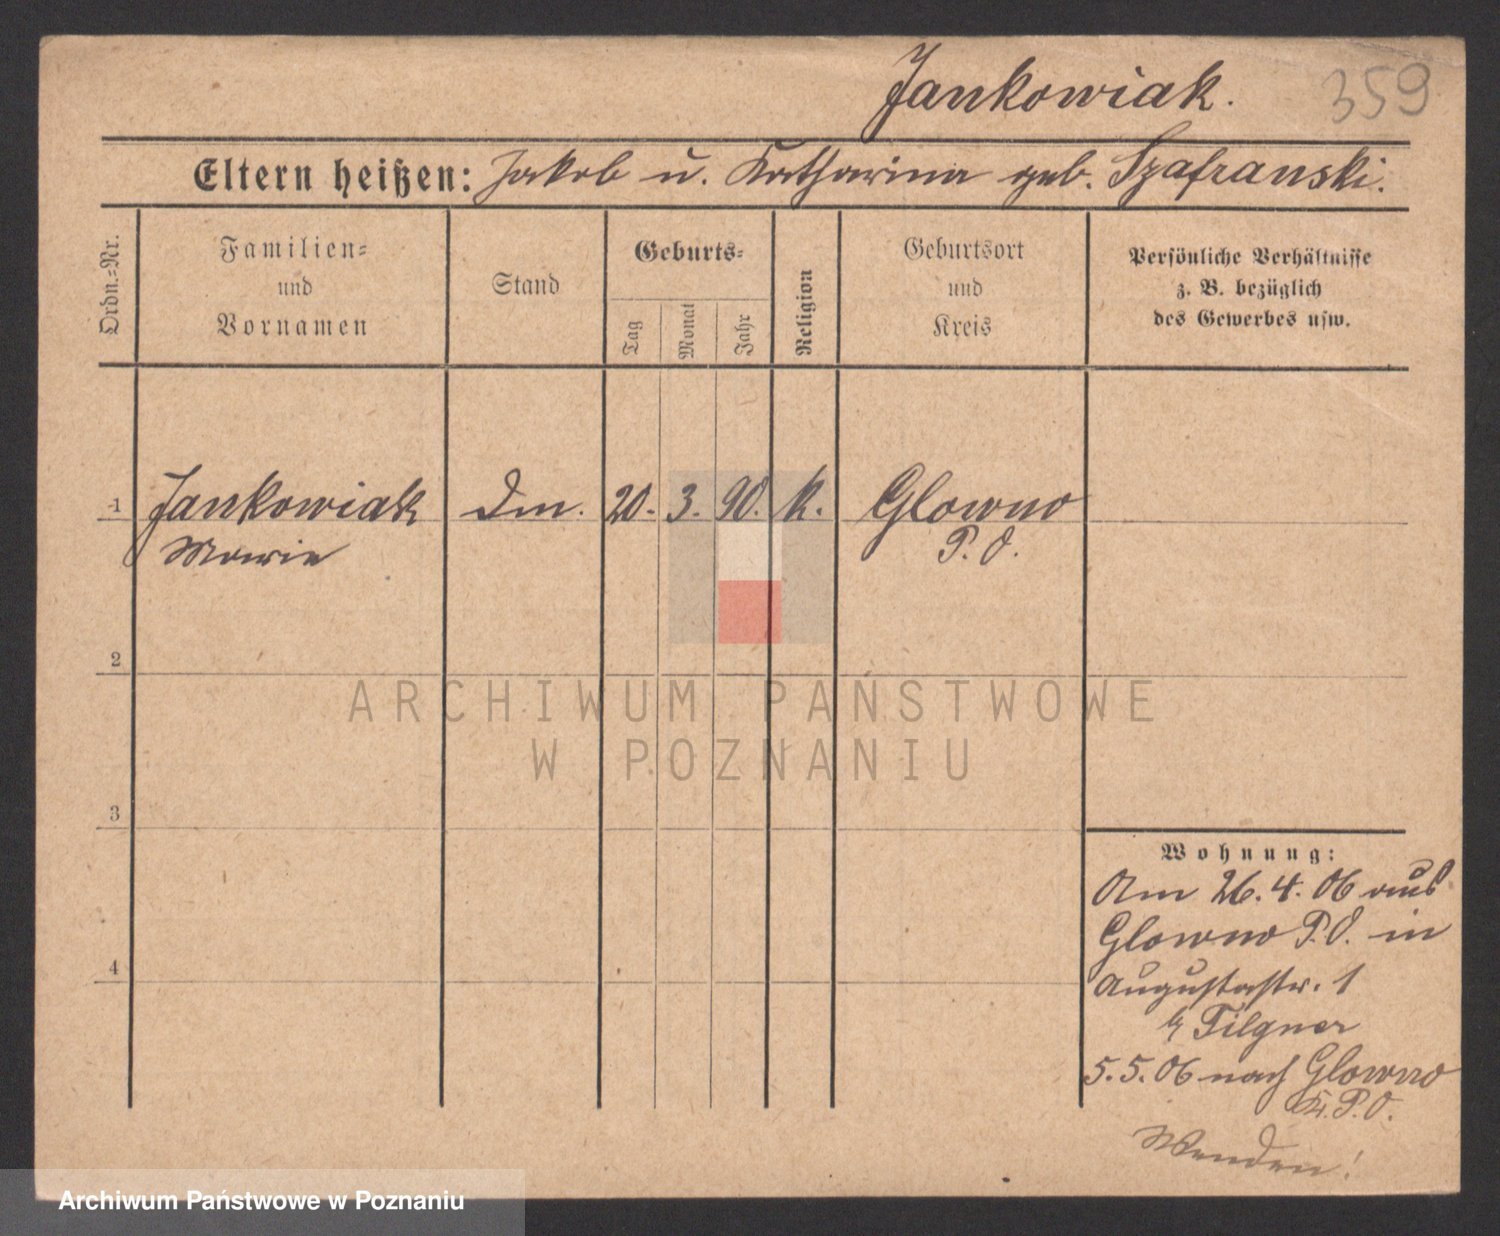 Jankowiak. 359
Eltern heißen: Jakob u. Katharina geb. Szafranski.
Ordn.=Nr.
Familien=
und
Vornamen
Stand
Geburts=
Tag
Monat
Jahr
Religion
Geburtsort
und
Kreis
Persönliche Verhältnisse
z. B. bezüglich
des Gewerbes usw.
1 Jankowiak Dm. 20. 3. 90. k. Glowno
Marie P. O.
2
3
4
Wohnung:
Am 26.4.06 aus
Glowno P.O. in
Augustastr. 1
b/ Tilgner
5.5.06 nach Glowno
Kr. P.O.
Wenden!
ARCHIWUM PAŃSTWOWE
W POZNANIU
Archiwum Państwowe w Poznaniu